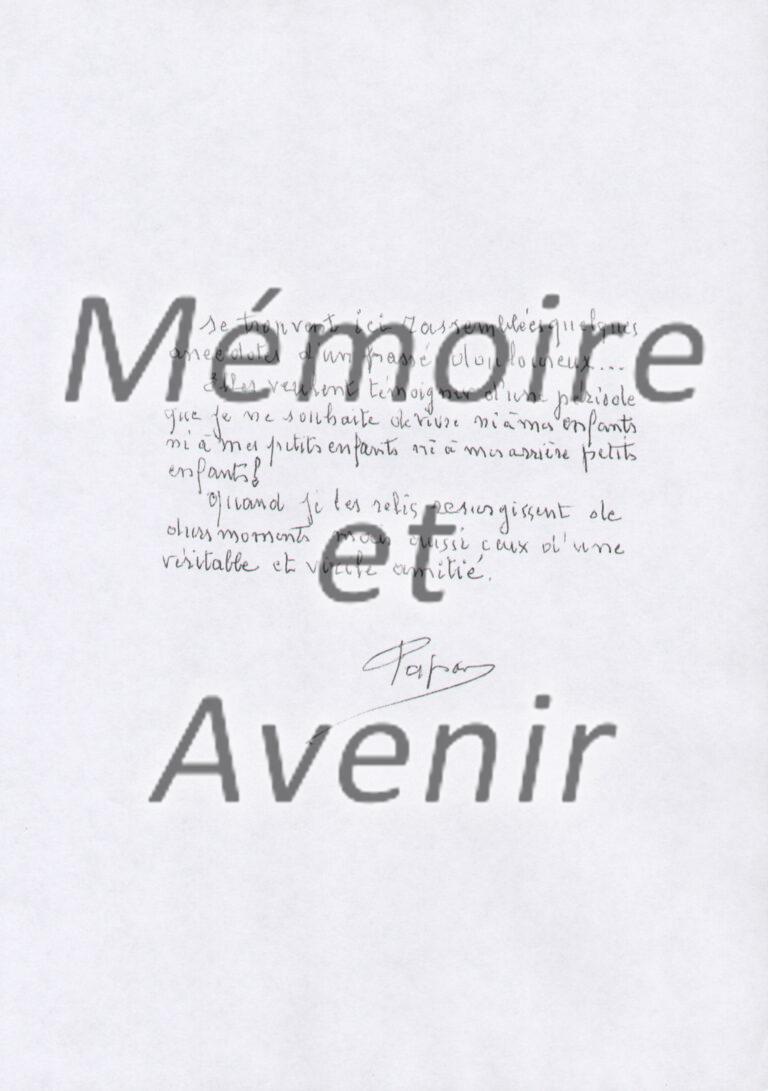 Mémoire
et
Avenir
Se trouvent ici rassemblées quelques
anecdotes d'un passé douloureux...
Elles veulent témoigner d'une période
que je ne souhaite de vivre ni à mes enfants
ni à mes petits enfants ni à mes arrière petits
enfants!
Quand je les relis resurgissent de
durs moments mais aussi ceux d'une
véritable et virile amitié.
Papa